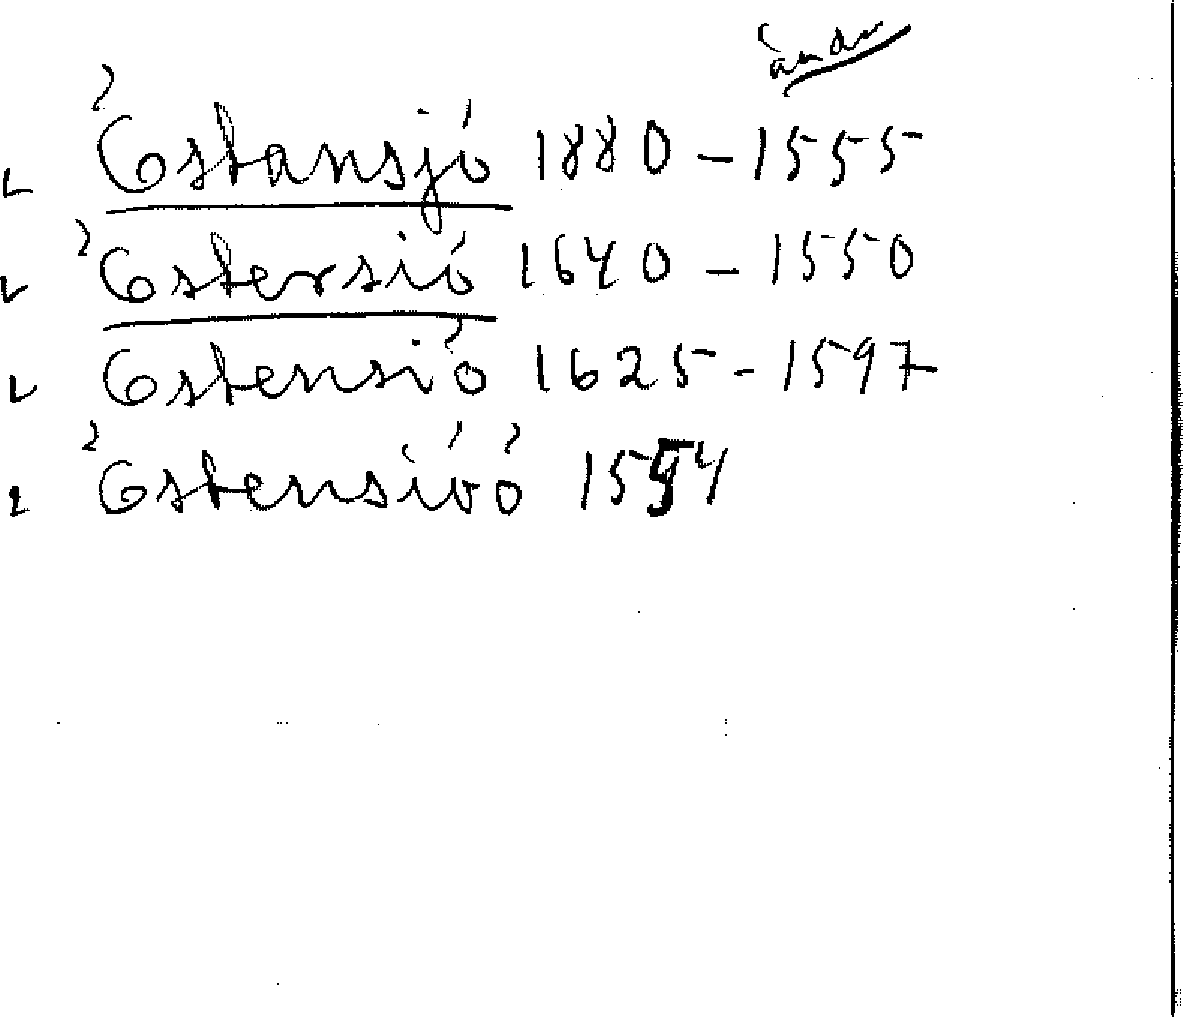 Estansjó 1880 – 1555
Estersió 1640 – 1550
Estensió 1625 – 1597
Estensivó 1554